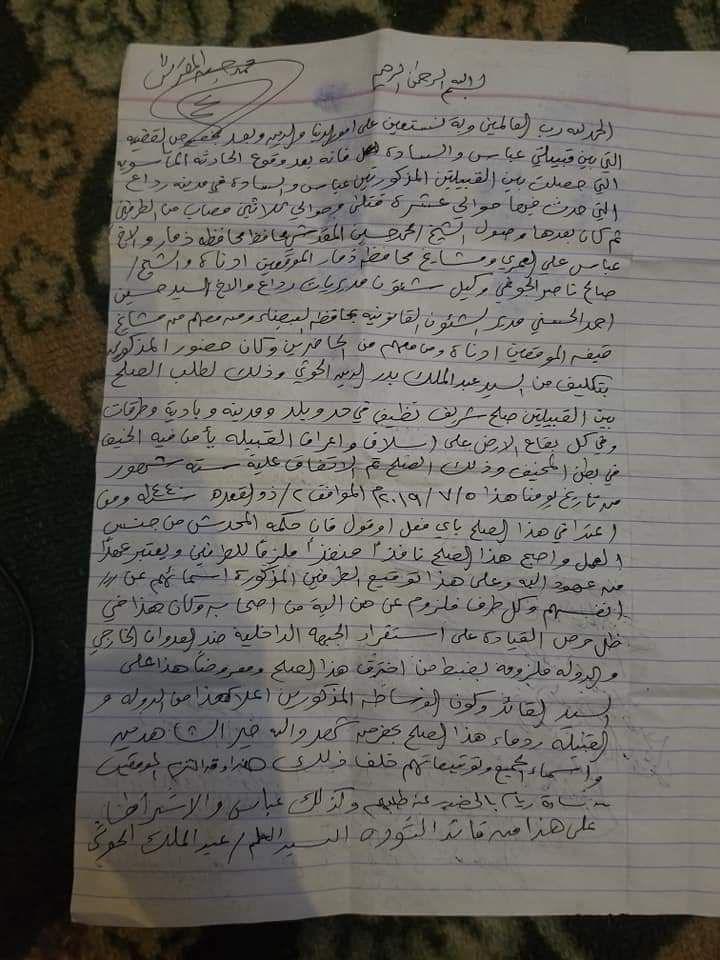 محمد حسين المقدشي
بسم الله الرحمن الرحيم
الحمد لله رب العالمين وبه نستعين على امور الدنيا والدين وبعد بخصوص القضيه
التي بين قبيلتي عباس والسادة فانه بعد وقوع الحادثه المأسويه
التي حصلت بين القبيلتين المذكورتين عباس والسادة في مدينه رداع
التي حدث فيها حوالي عشرة قتلى وحوالي ثلاثين مصاب من الطرفين
ثم كان بعدها وصول الشيخ محمد حسين المقدشي محافظ محافظه ذمار والاخ
عباس علي العمري ومشايخ محافظه ذمار الموقعين ادناة والشيخ/
صالح ناصر الجوفي وكيل شئون مديريات رداع والاخ السيد حسين
احمد الحسني مدير الشئون القانونيه بمحافظه البيضاء ومن معهم من مشايخ
قيفه الموقعين ادناة ومن معهم من الحاضرين وكان حضور المذكورين
بتكليف من السيد عبدالملك بدر الدين الحوثي وذلك لطلب الصلح
بين القبيلتين صلح شريف نظيف في حد وبلد ومدينه وبادية وطرقات
وفي كل بقاع الارض على اسلاف واعراف القبيله يأمن فيه الخيف
في بطن المخيف وذلك الصلح تم الاتفاق علية سته شهور
من تاريخ يومنا هذا ٢٠١٩/٧/٥م الموافق ٢/ذو القعده ١٤٤٠ه ومن
اعترا في هذا الصلح باي فعل او قول فان حكمه المحدش من جنس
العمل واصبح هذا الصلح نافذاً منفذاً ملزماً للطرفين ويعتبر عهداً
من عهود الله وعلى هذا توقيع الطرفين المذكورة اسمائهم عن
انفسهم وكل طرف ملزوم عن من اليه من اصحابه وكان هذا في
ظل حرص القيادة على استقرار الجبهه الداخلية ضد العدوان الخارجي
والدوله ملزومه بضبط من اخترق هذا الصلح ومفروضاً هذا على
السيد القائد وكون الوساطه المذكورين اعلا هذا من الدوله و
القبيله ردماء هذا الصلح والله خير الشاهدين
واسماء الجميع وتوقيعاتهم خلف ذلك الموقعين
سادة ريام بالحضور عن طلبهم وكذلك عباس والاشراف
على هذا من قائد الثورة السيد العلم/عبد الملك الحوثي